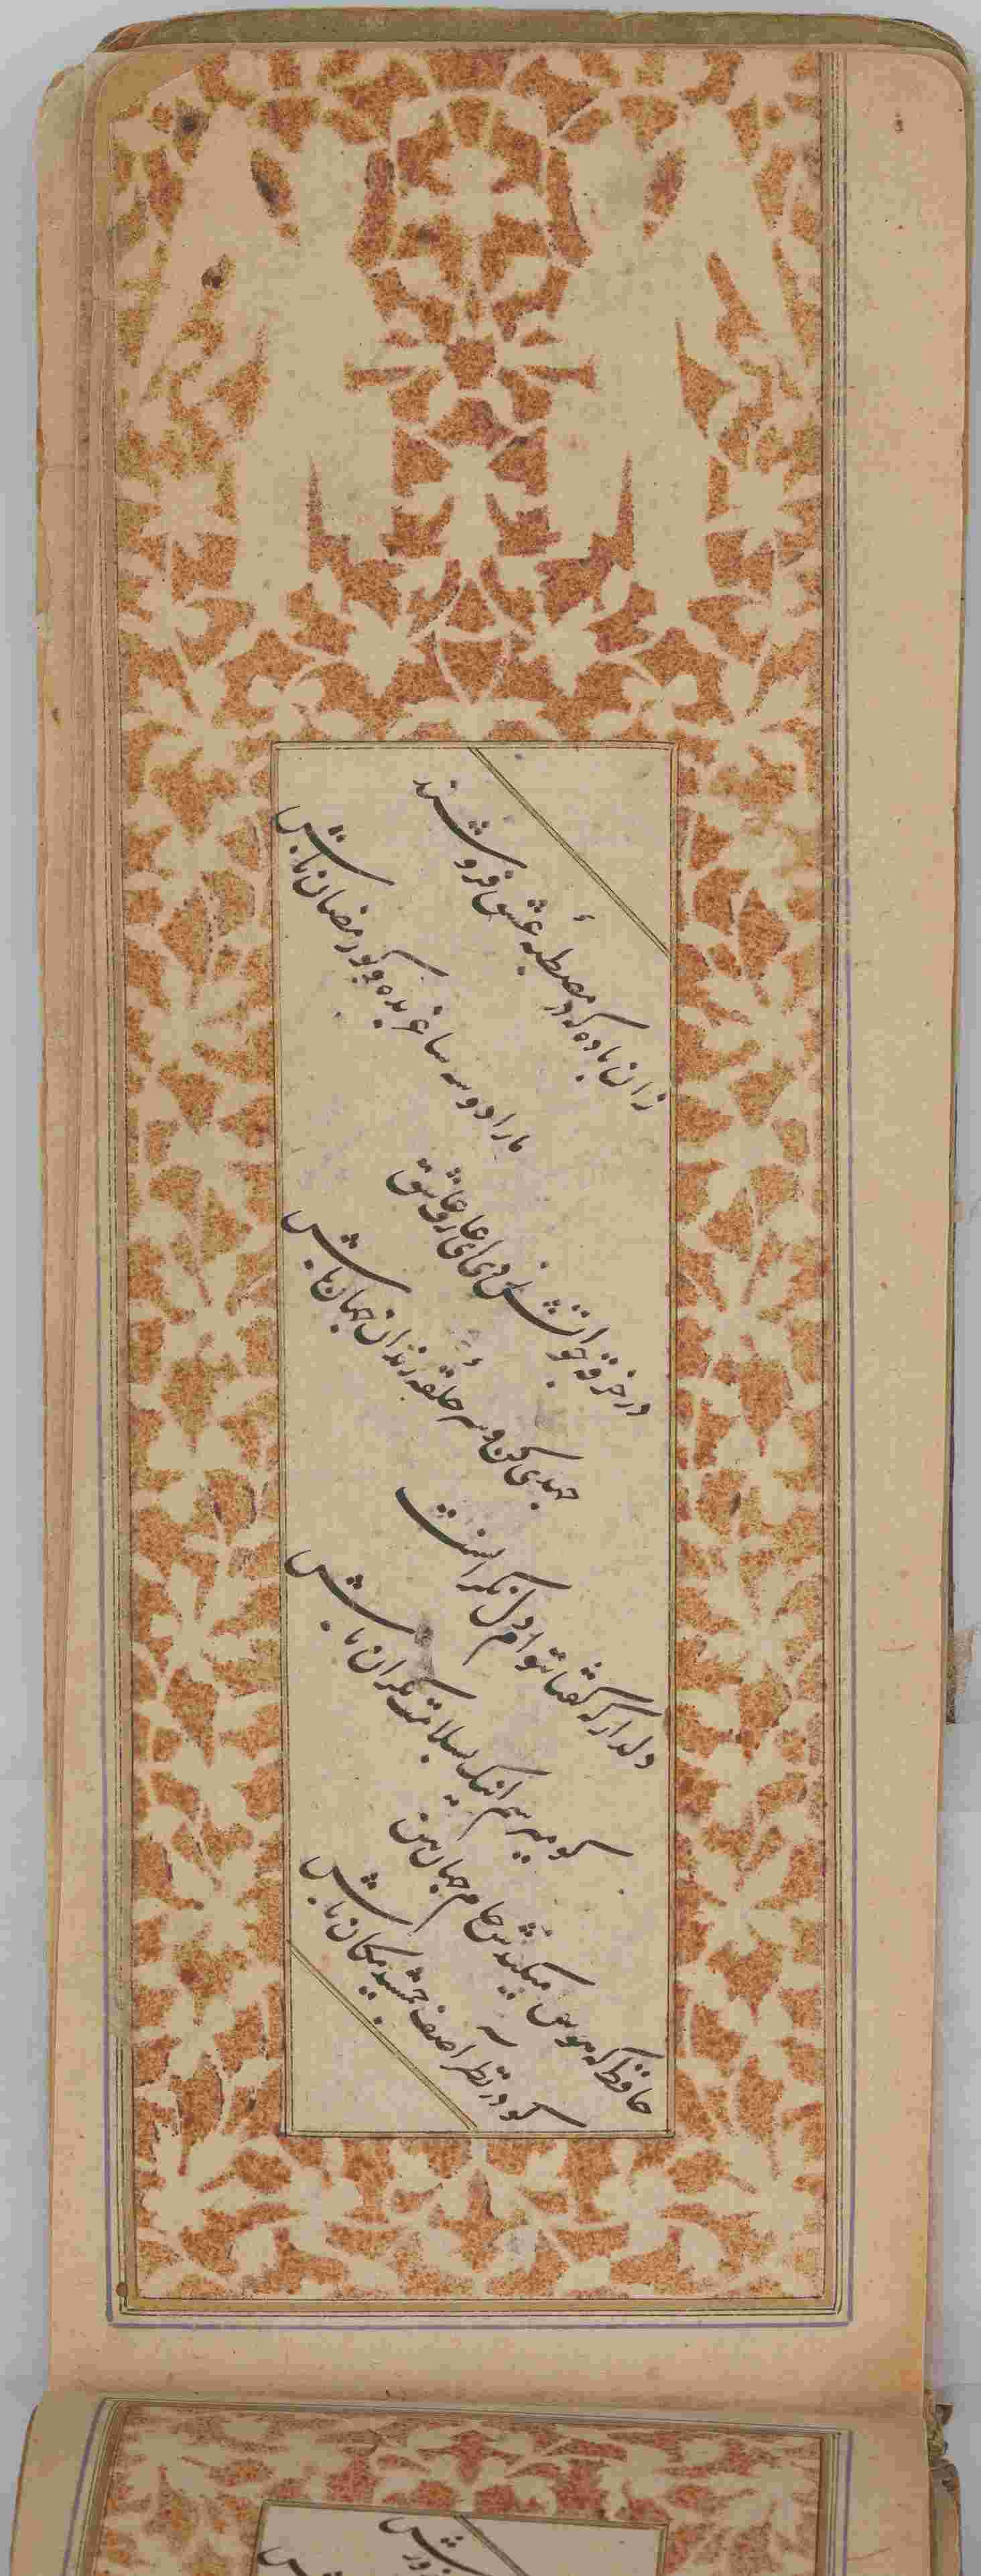 زان باده که در مصطبهٔ عشق فروشند
ما را دو سه ساغر بده و گو رمضان باش
در خرقه چو آتش زدی ای عارف عاشق
جهدی کن و سر حلقهٔ رندان جهان باش
دلدار که گفتا بتوام دل نگرانست
گو میرسم اینک بسلامت نگران باش
حافظ که هوس میکندش جام جهان بین
گو در نظر آصف جمشید مکان باش